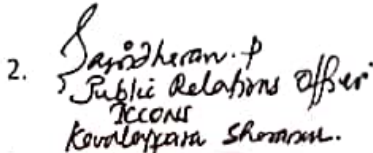 2. Sasidharan. P
Public Relations Officer
ICCONS
Kavalappara Shoranur.